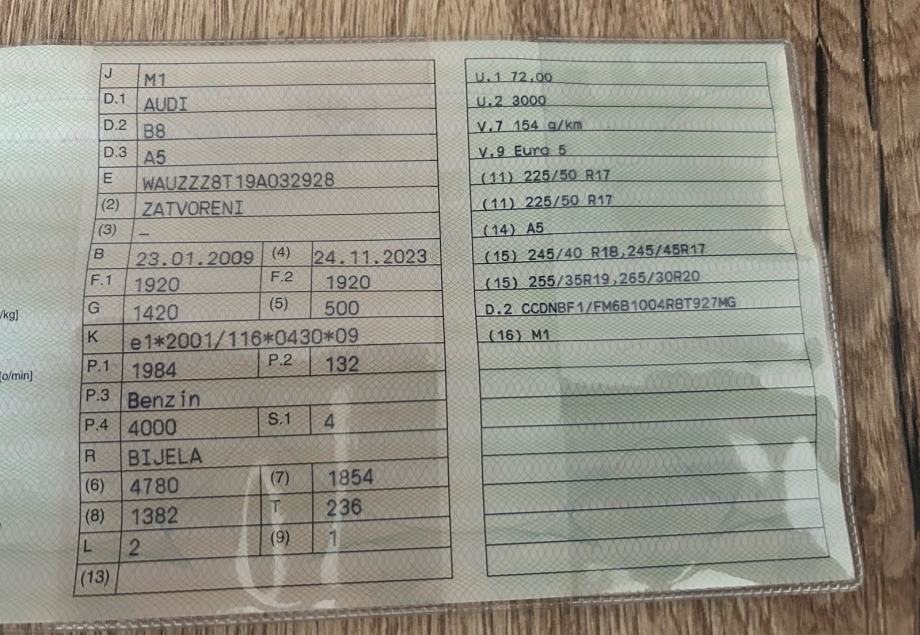 J M1
D.1 AUDI
D.2 B8
D.3 A5
E WAUZZZ8T19A032928
(2) ZATVORENI
(3) –
B 23.01.2009 (4) 24.11.2023
F.1 1920 F.2 1920
G 1420 (5) 500
K e1*2001/116*0430*09
P.1 1984 P.2 132
P.3 Benzin
P.4 4000 S.1 4
R BIJELA
(6) 4780 (7) 1854
(8) 1382 T 236
L 2 (9) 1
(13)
/kg]
[o/min]
U.1 72,00
U.2 3000
V.7 154 g/km
V.9 Euro 5
(11) 225/50 R17
(11) 225/50 R17
(14) A5
(15) 245/40 R18,245/45R17
(15) 255/35R19,265/30R20
D.2 CCDNBF1/FM6B1004R8T927MG
(16) M1